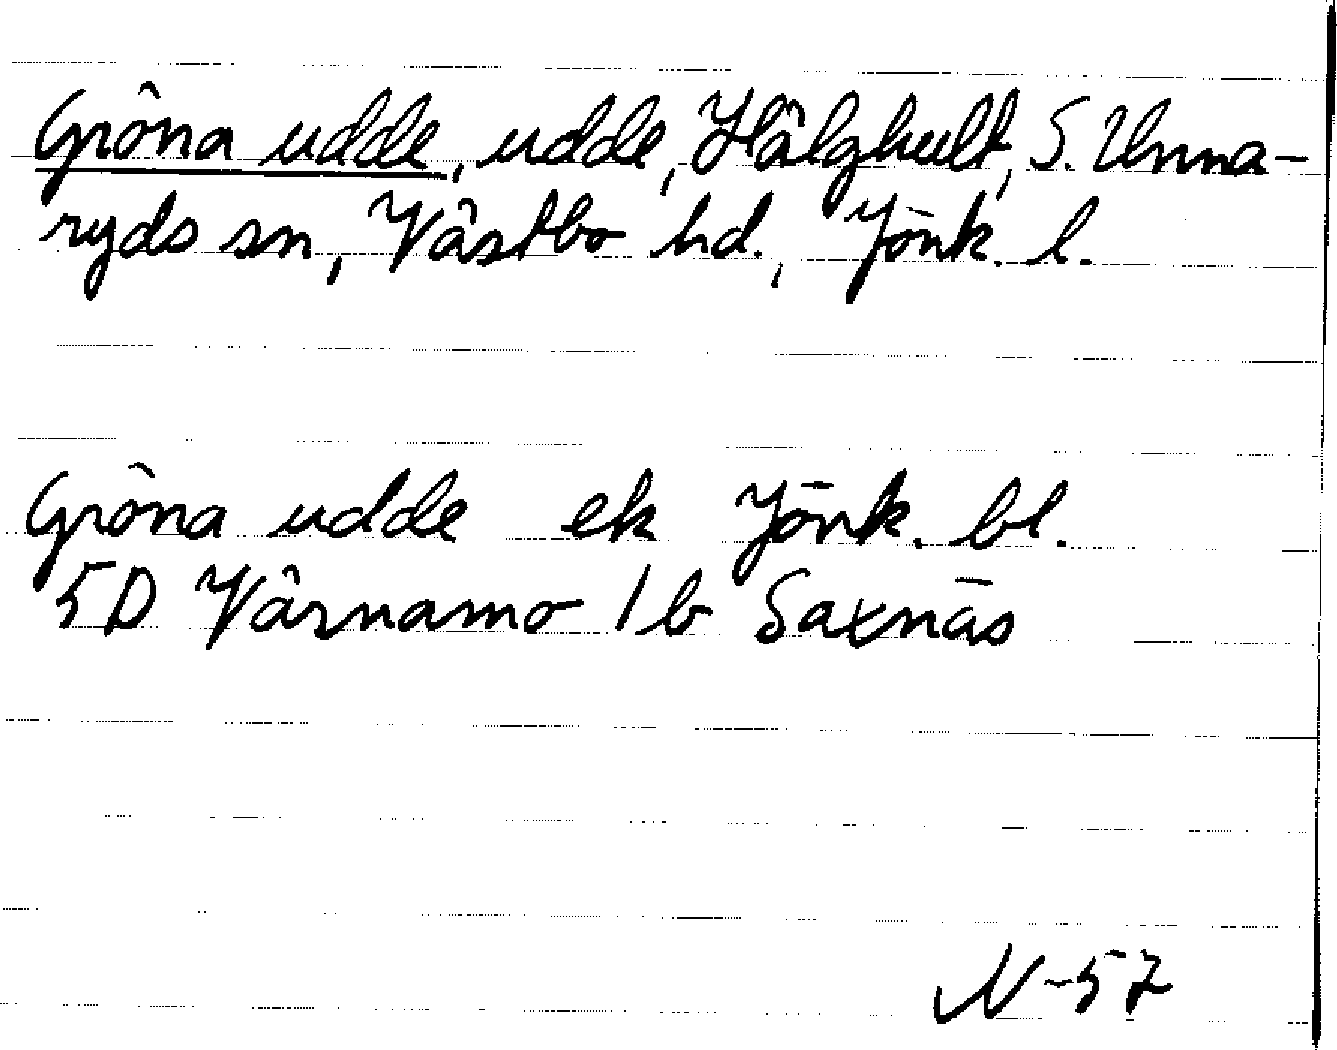 Gröna udde, udde, Hälghult, S. Unna-
ryds sn, Västbo hd., Jönk. l.
Gröna udde ek Jönk. bl.
5D Värnamo 1b Saxnäs
N-57